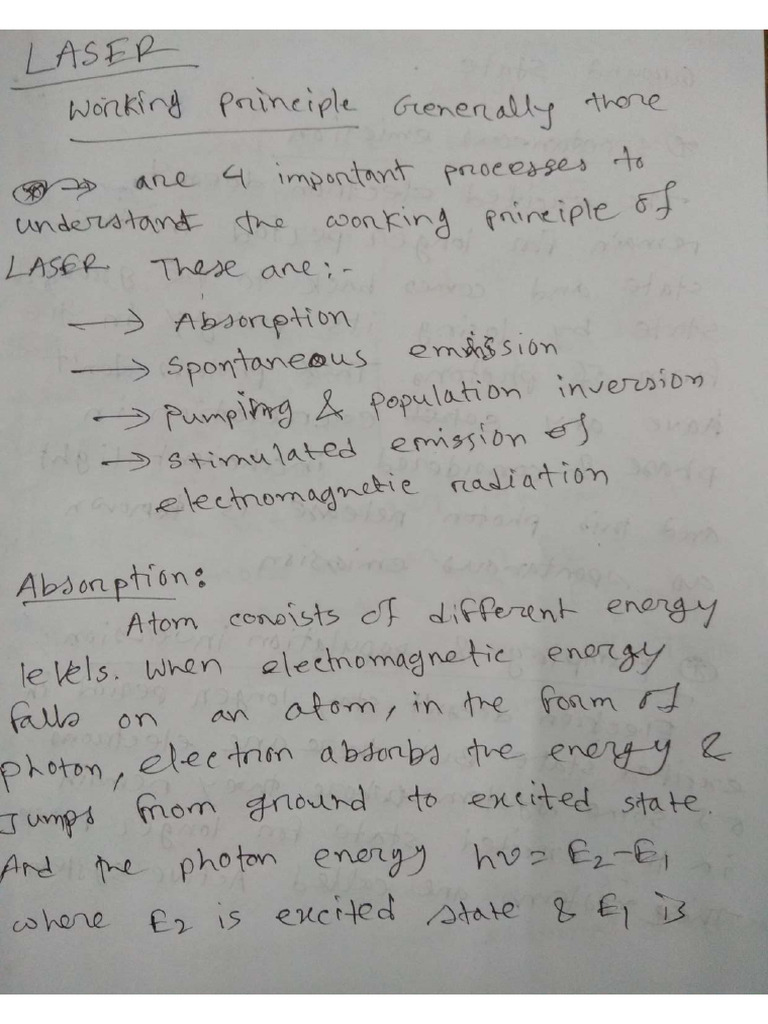 LASER
Working Principle Generally there
→ are 4 important processes to
understand the working principle of
LASER These are:-
→ Absorption
→ Spontaneous emission
→ Pumping & population inversion
→ Stimulated emission of
electromagnetic radiation
Absorption:
Atom consists of different energy
levels. When electromagnetic energy
falls on an atom, in the form of
photon, electron absorbs the energy &
Jumps from ground to excited state.
And the photon energy hν = E2-E1
where E2 is excited state & E1 is